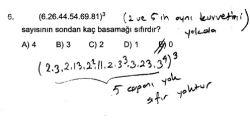 6. (6.26.44.54.69.81)³ (2 ve 5 in aynı kuvvetini)
sayısının sondan kaç basamağı sıfırdır? yoksa
A) 4 B) 3 C) 2 D) 1 E) 0
(2.3.2.13.2².11.2.3³.3.23.3⁴)³
5 çarpanı yok
sıfır yoktur